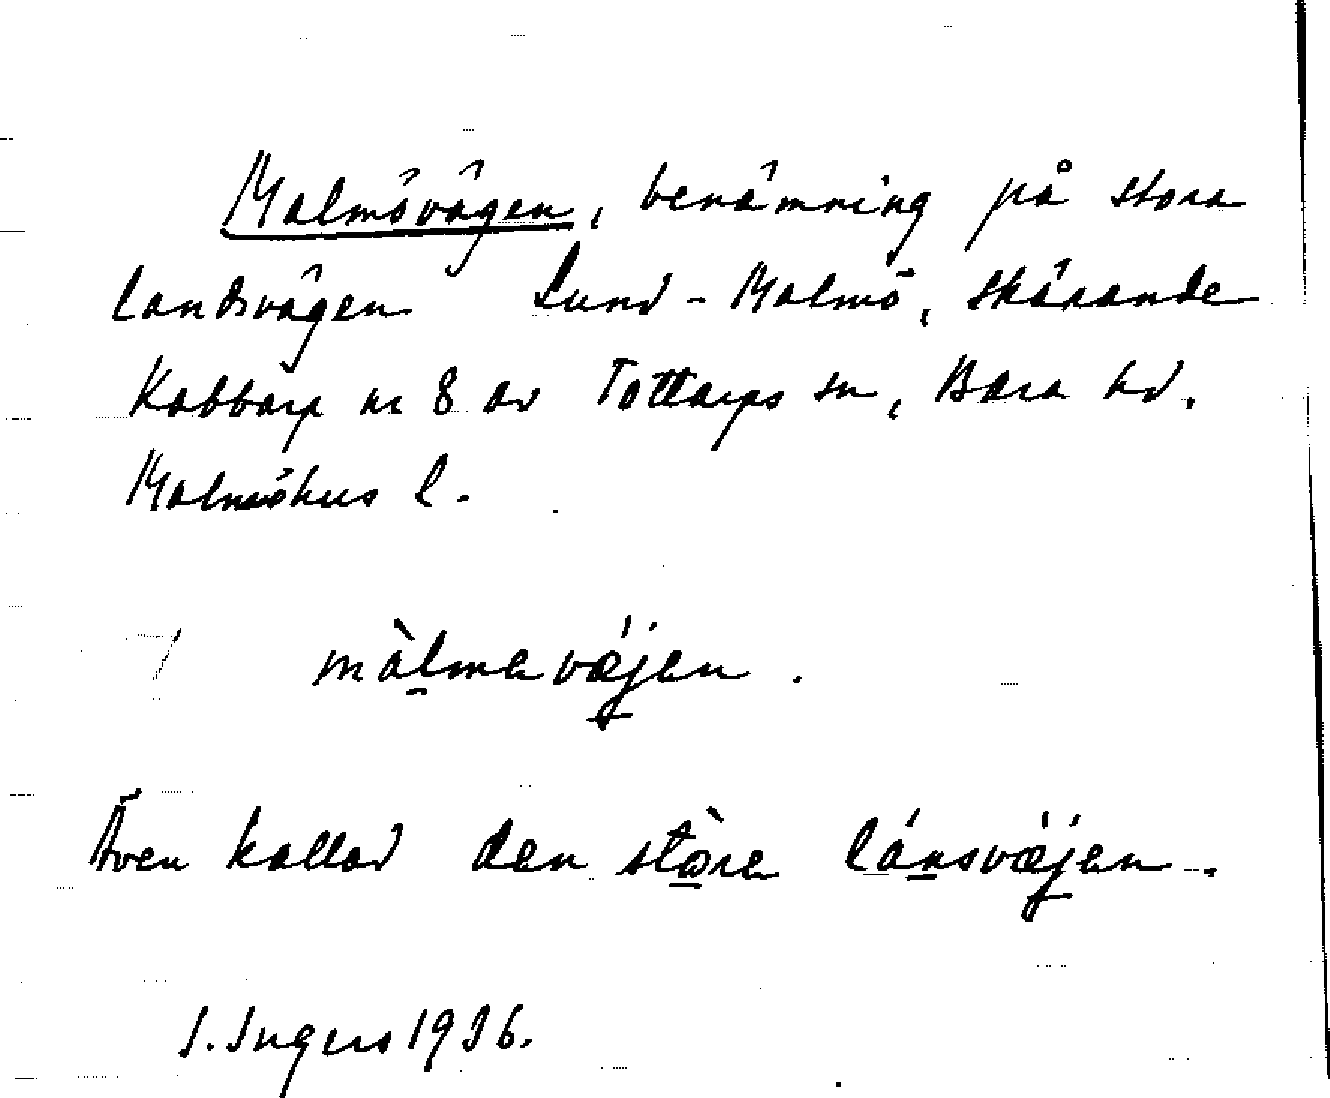 Malmövägen, benämning på stora
landsvägen Lund - Malmö, skärande
Kabbarp nr 8 av Tottarps sn, Bara hd.
Malmöhus l.
màlmavæjen.
Även kallad den stòra lánsvæjen.
I. Ingers 1936.